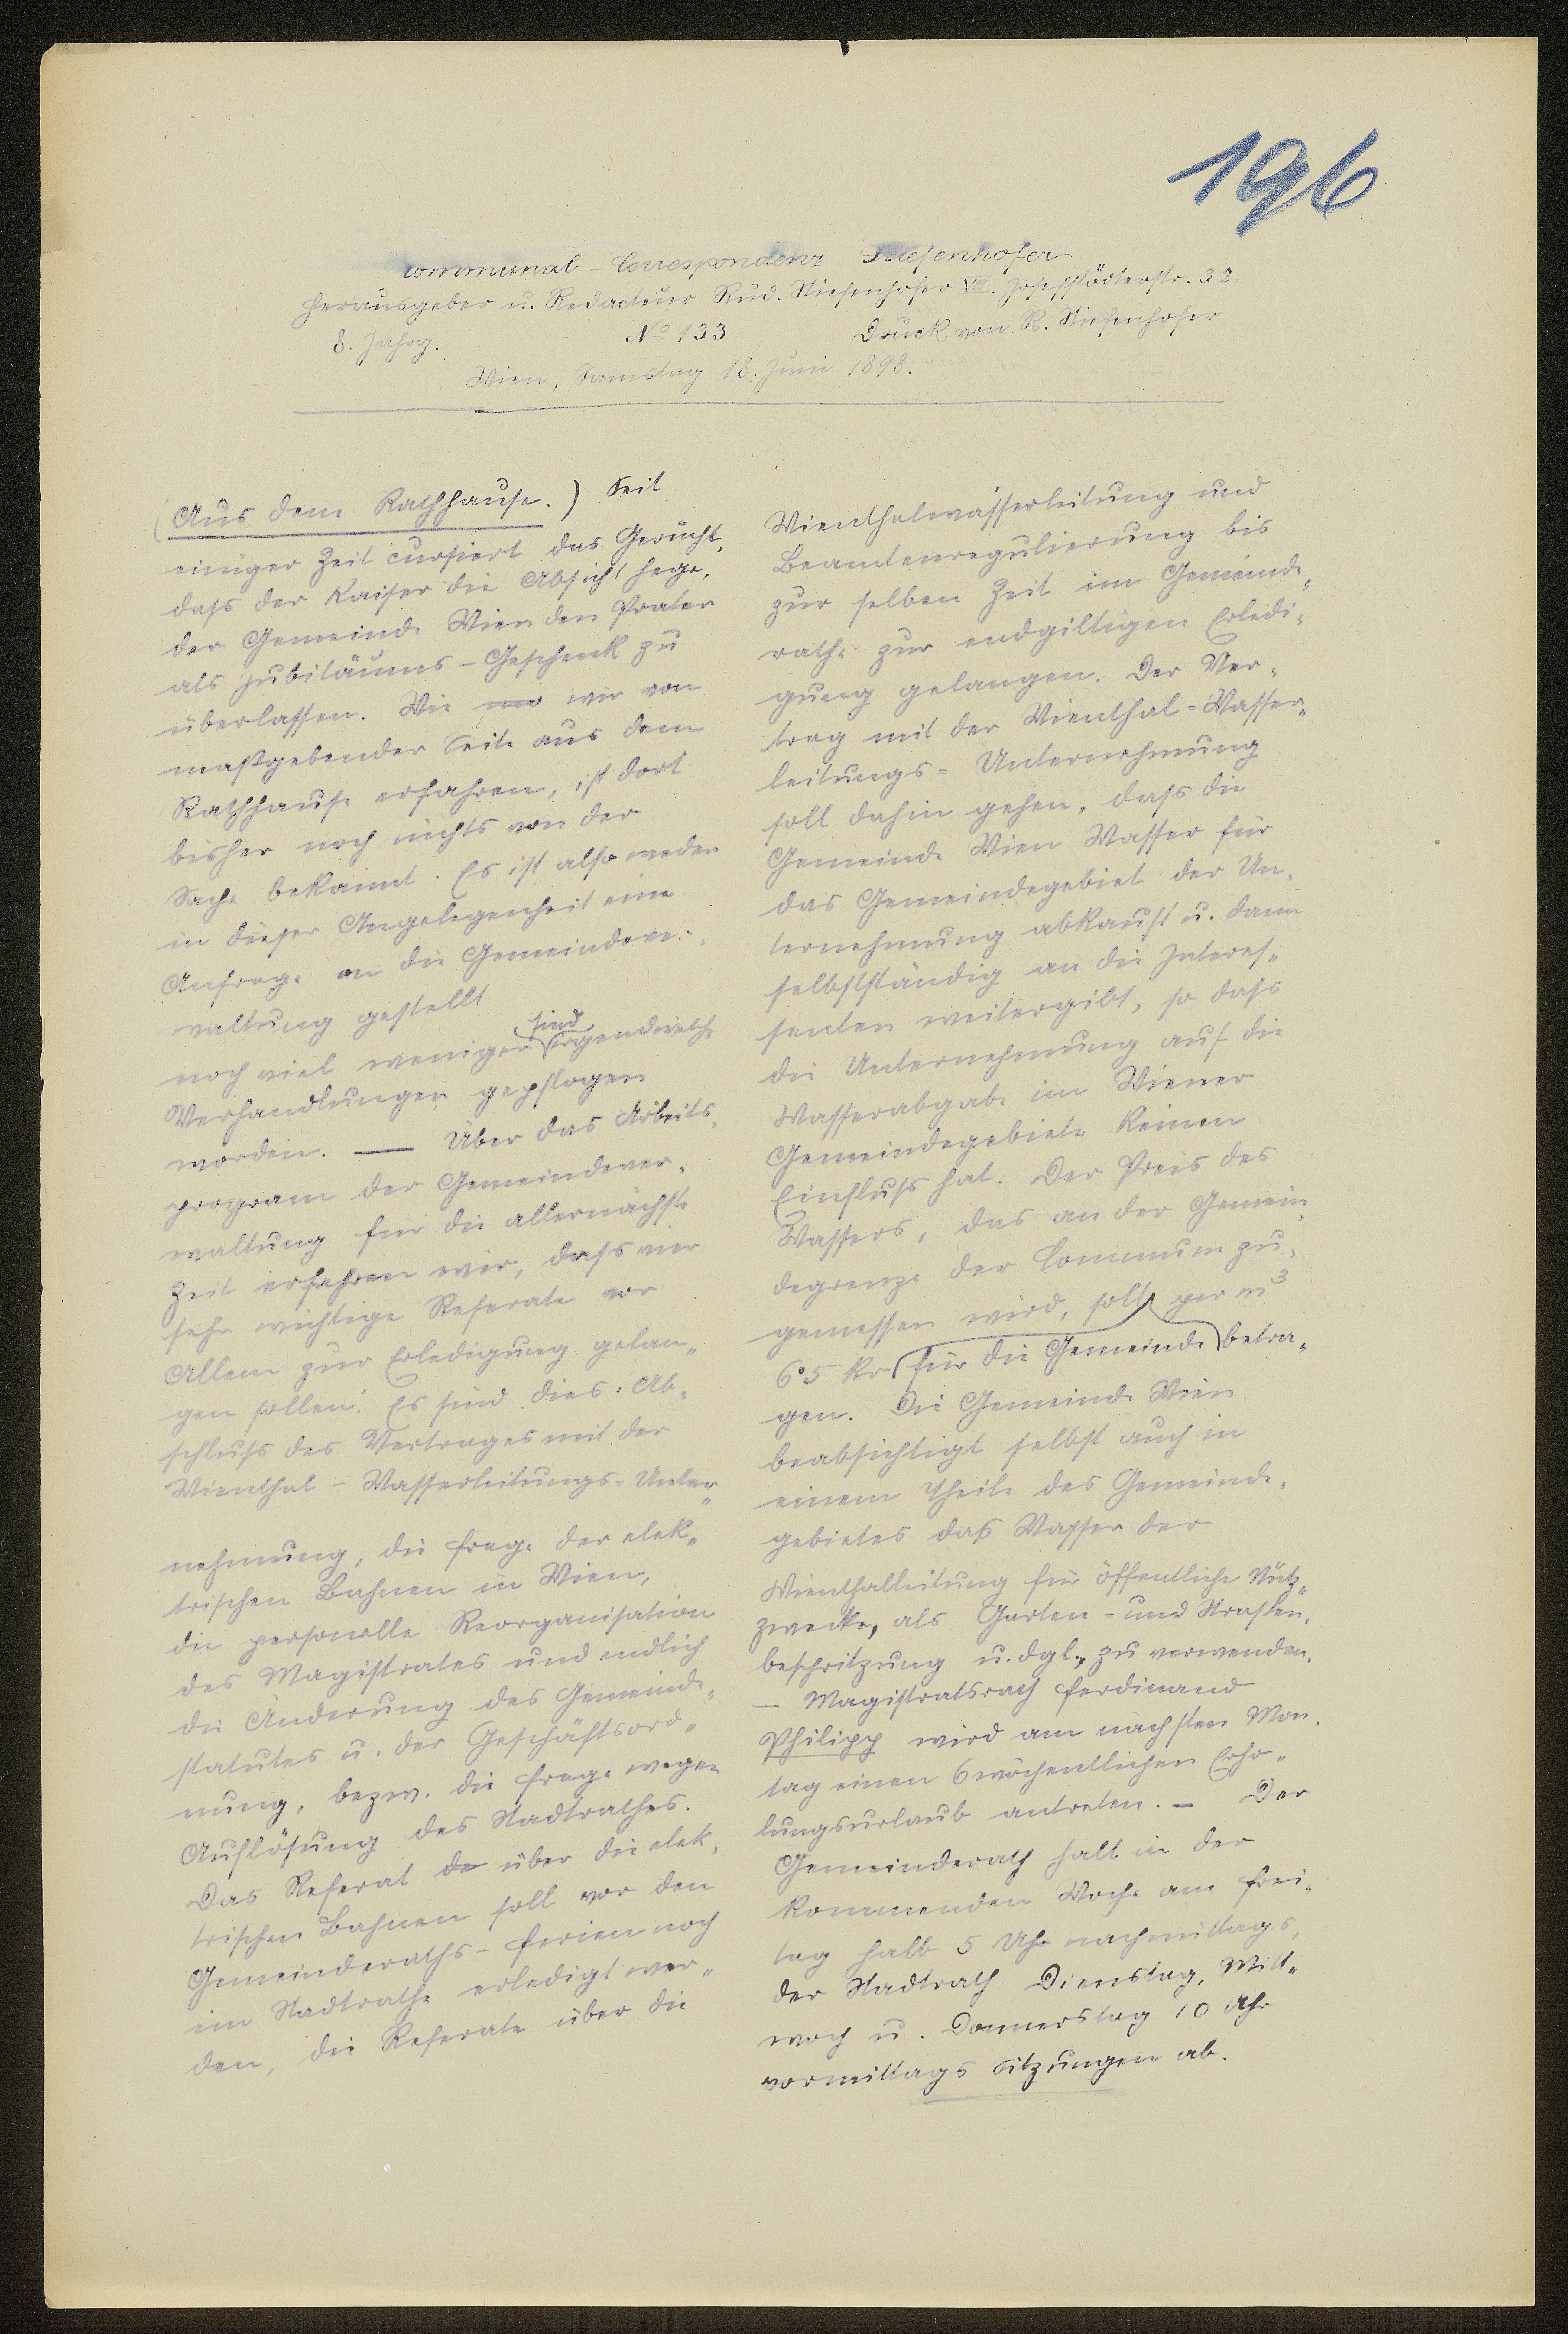 196
Communal-Correspondenz Stiefenhofer
Herausgeber u. Redacteur Rud. Stiefenhofer VIII. Josefstädterstr. 32
8. Jahrg. No 133 Druck von R. Stiefenhofer
Wien, Samstag 18. Juni 1898.
(Aus dem Rathhause.) Seit
einiger Zeit cursiert das Gerücht,
dass der Kaiser die Absicht hege,
der Gemeinde Wien den Prater
als Jubiläums-Geschenk zu
überlassen. Wie wir von
maßgebender Seite aus dem
Rathhause erfahren, ist dort
bisher noch nichts von der
Sache bekannt. Es ist also weder
in dieser Angelegenheit eine
Anfrage an die Gemeindever-
waltung gestellt
noch viel weniger sind irgendwelche
Verhandlungen gepflogen
worden. — Über das Arbeits-
program der Gemeindever-
waltung für die allernächste
Zeit erfahren wir, dass vier
sehr wichtige Referate vor
Allem zur Erledigung gelan-
gen sollen. Es sind dies: Ab-
schluss des Vertrages mit der
Wienthal-Wasserleitungs-Unter-
nehmung, die Frage der elek-
trischen Bahnen in Wien,
die personelle Reorganisation
des Magistrates und endlich
die Änderung des Gemeinde-
statutes u. der Geschäftsord-
nung, bezw. die Frage wegen
Auflösung des Stadtrathes.
Das Referat de über die elek-
trischen Bahnen soll vor den
Gemeinderaths-Ferien noch
im Stadtrathe erledigt wer-
den, die Referate über die
Wienthalwasserleitung und
Beamtenregulierung bis
zur selben Zeit im Gemeinde-
rathe zur endgiltigen Erledi-
gung gelangen. Der Ver-
trag mit der Wienthal-Wasser-
leitungs-Unternehmung
soll dahin gehen, dass die
Gemeinde Wien Wasser für
das Gemeindegebiet der Un-
ternehmung abkauft u. dann
selbstständig an die Interes-
senten weitergibt, so dass
die Unternehmung auf die
Wasserabgabe im Wiener
Gemeindegebiete keinen
Einfluss hat. Der Preis des
Wassers, das an der Gemein-
degrenze der Commune zu-
gemessen wird, soll per m3
6·5 kr für die Gemeinde betra-
gen. Die Gemeinde Wien
beabsichtigt selbst auch in
einem Theile des Gemeinde-
gebietes das Wasser der
Wienthalleitung für öffentliche Nutz-
zwecke, als Garten- und Strassen-
bespritzung u. dgl., zu verwenden.
— Magistratsrath Ferdinand
Philipp wird am nächsten Mon-
tag einen 6 wöchentlichen Erho-
lungsurlaub antreten. — Der
Gemeinderath hält in der
kommenden Woche am Frei-
tag halb 5 Uhr nachmittags,
der Stadtrath Dienstag, Mitt-
woch u. Donnerstag 10 Uhr
vormittags Sitzungen ab.